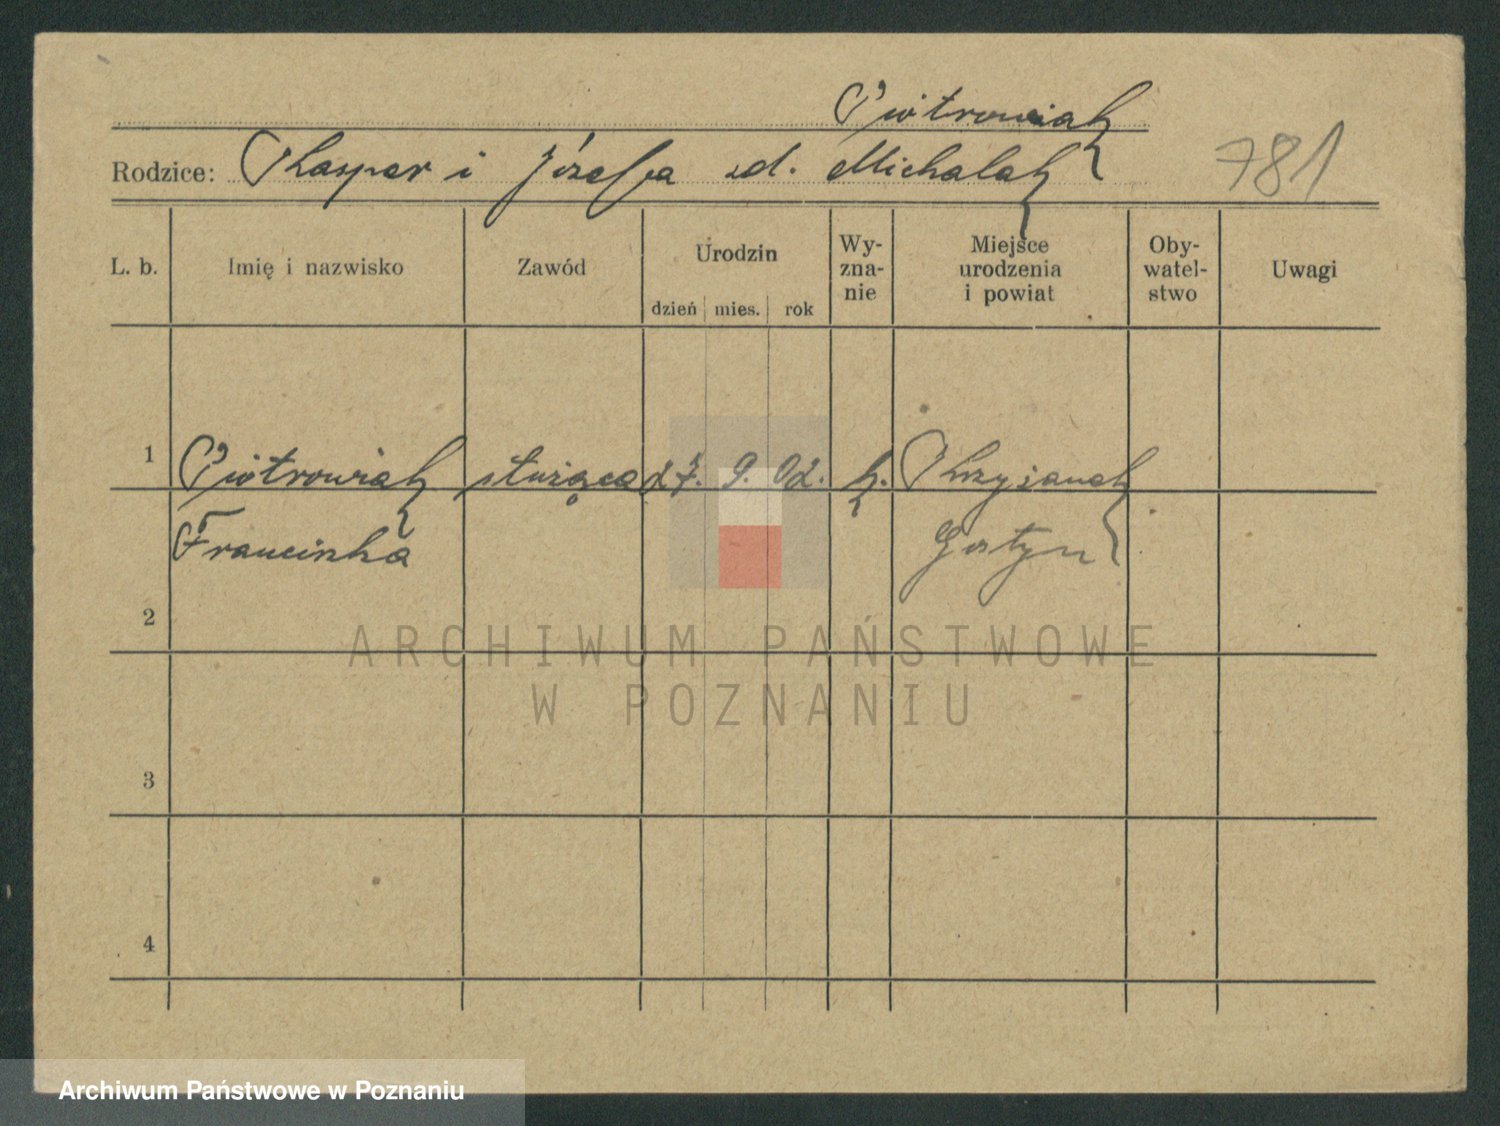 Piotrowiak
Rodzice: Kasper i Józefa zd. Michalak
781
L. b. Imię i nazwisko Zawód Urodzin dzień mies. rok Wy-zna-nie Miejsce urodzenia i powiat Oby-watel-stwo Uwagi
1 Piotrowiak służąca 27. 9. 02. k. Krzyżanek
Franciszka Gostyn
2
3
4
ARCHIWUM PAŃSTWOWE
W POZNANIU
Archiwum Państwowe w Poznaniu